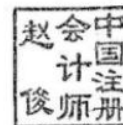 中国注册
会计师
赵俊